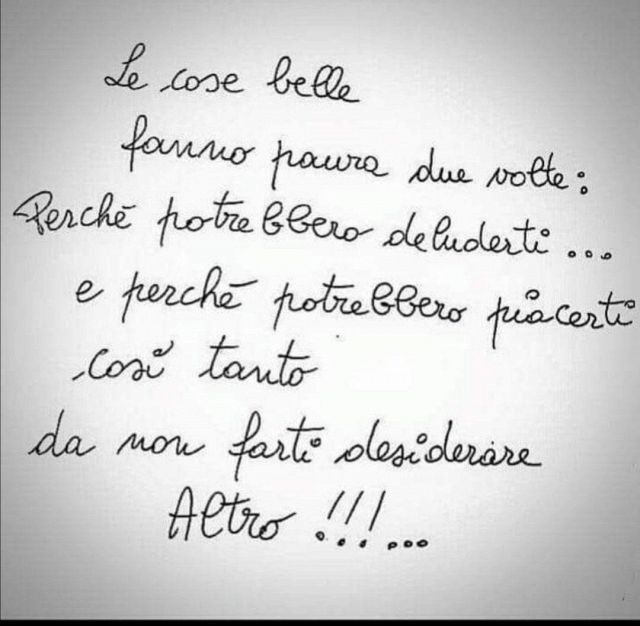 Le cose belle
fanno paura due volte:
Perchē potrebbero deluderti...
e perchē potrebbero piacerti
così tanto
da non farti desiderare
Altro !!!...